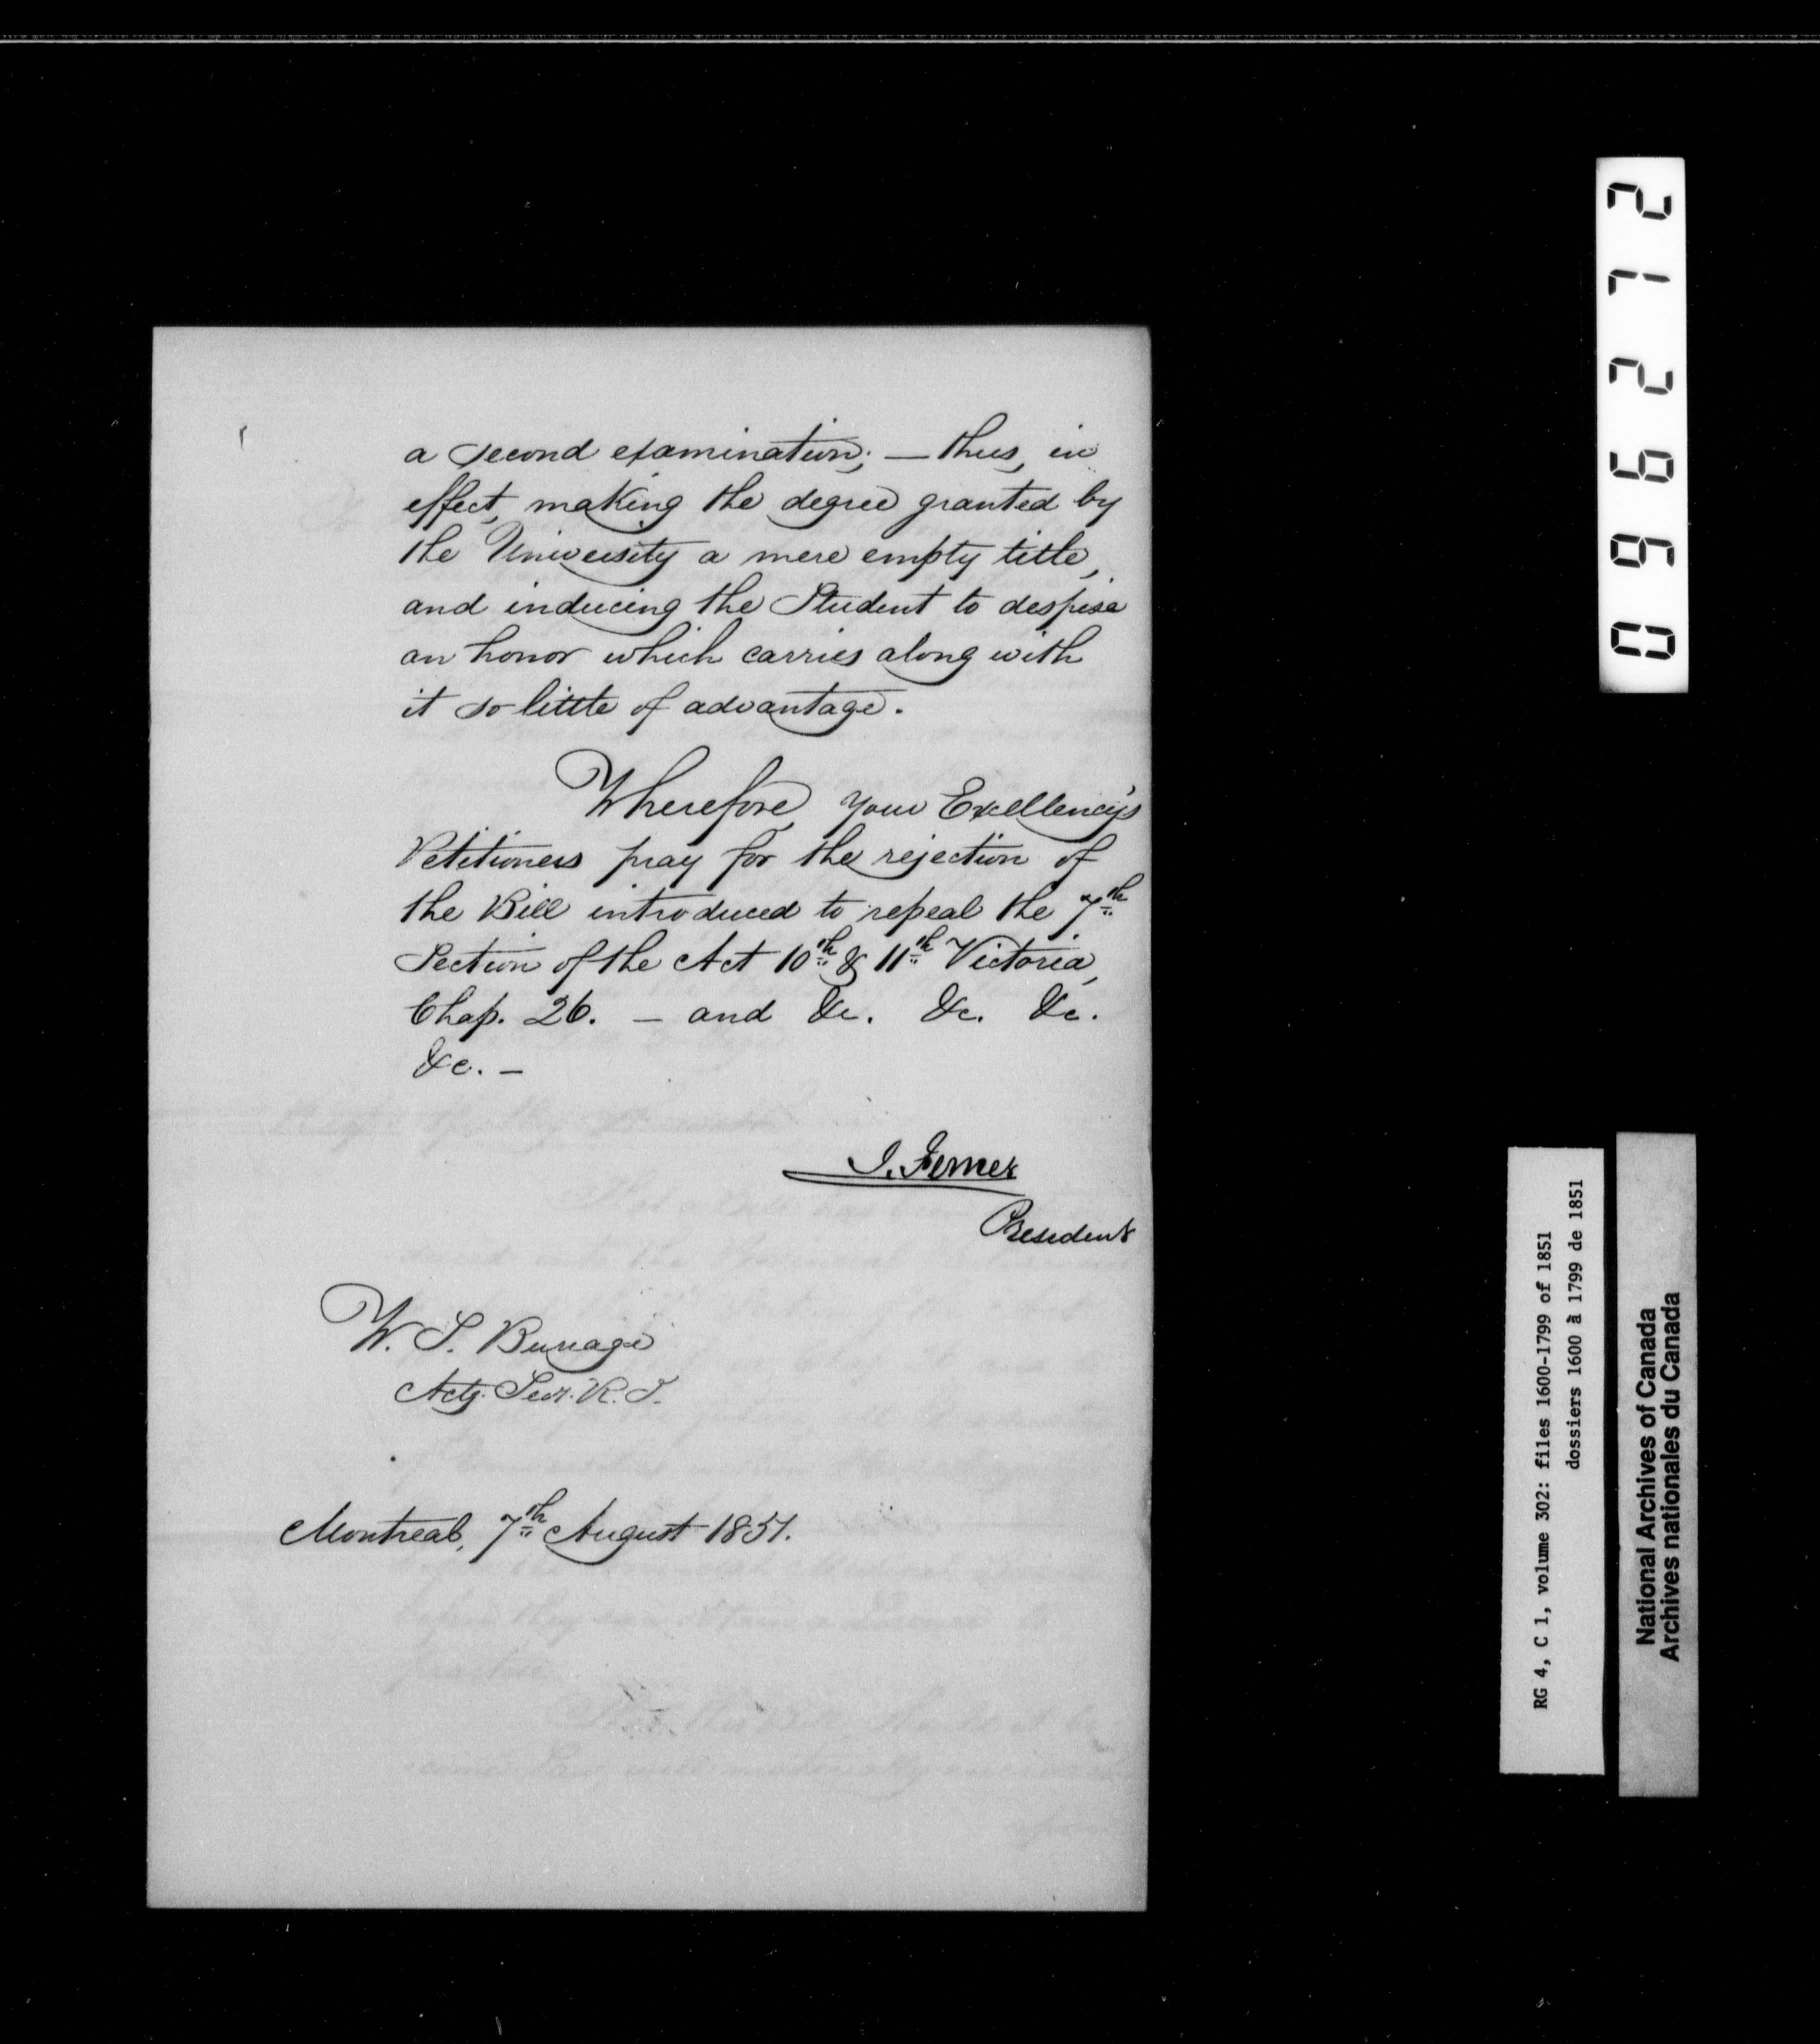 a second examination; — thus, in
effect, making the degree granted by
the University a mere empty title,
and inducing the Student to despise
an honor which carries along with
it so little of advantage.
Wherefore, your Excellency's
Petitioners pray for the rejection of
the Bill introduced to repeal the 7th
Section of the Act 10th & 11th Victoria,
Chap. 26. — and &c. &c. &c.
&c. —
President
W. S. Burrage
Actg. Secr. R. I.
Montreal, 7th August 1851.
096272
RG 4, C 1, volume 302: files 1600-1799 of 1851
dossiers 1600 à 1799 de 1851
National Archives of Canada
Archives nationales du Canada